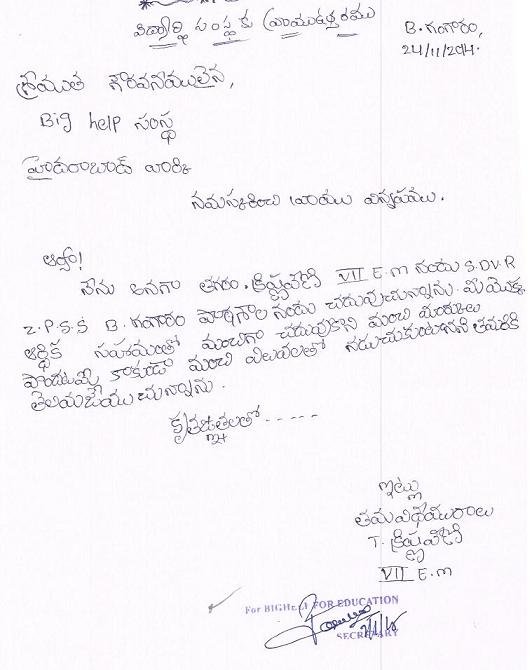 విద్యార్థి సంస్థకు వ్రాయుఉత్తరము
B. గంగారం,
24/11/2014.
శ్రీయుత గౌరవనీయులైన,
Big help సంస్థ
హైదరాబాద్ వారికి
నమస్కరించి వ్రాయు విన్నపము.
ఆర్యా!
నేను అనగా తగరం. క్రిష్ణవేణి VII E.m నందు S.DV.R
Z.P.S.S B. గంగారం పాఠశాల నందు చదువుచున్నాను. మీ యొక్క
ఆర్థిక సహయంతో మంచిగా చదువుకొని మంచి మార్కులు
పొందటమే కాకుండా మంచి విలువలతో నడుచుకుంటానని తమరికి
తెలియజేయు చున్నాను.
కృతజ్ఞతలతో - - - - -
ఇట్లు
తమ విధేయురాలు
T. క్రిష్ణవేణి
VII E.m
For BIGHELP FOR EDUCATION
SECRETARY